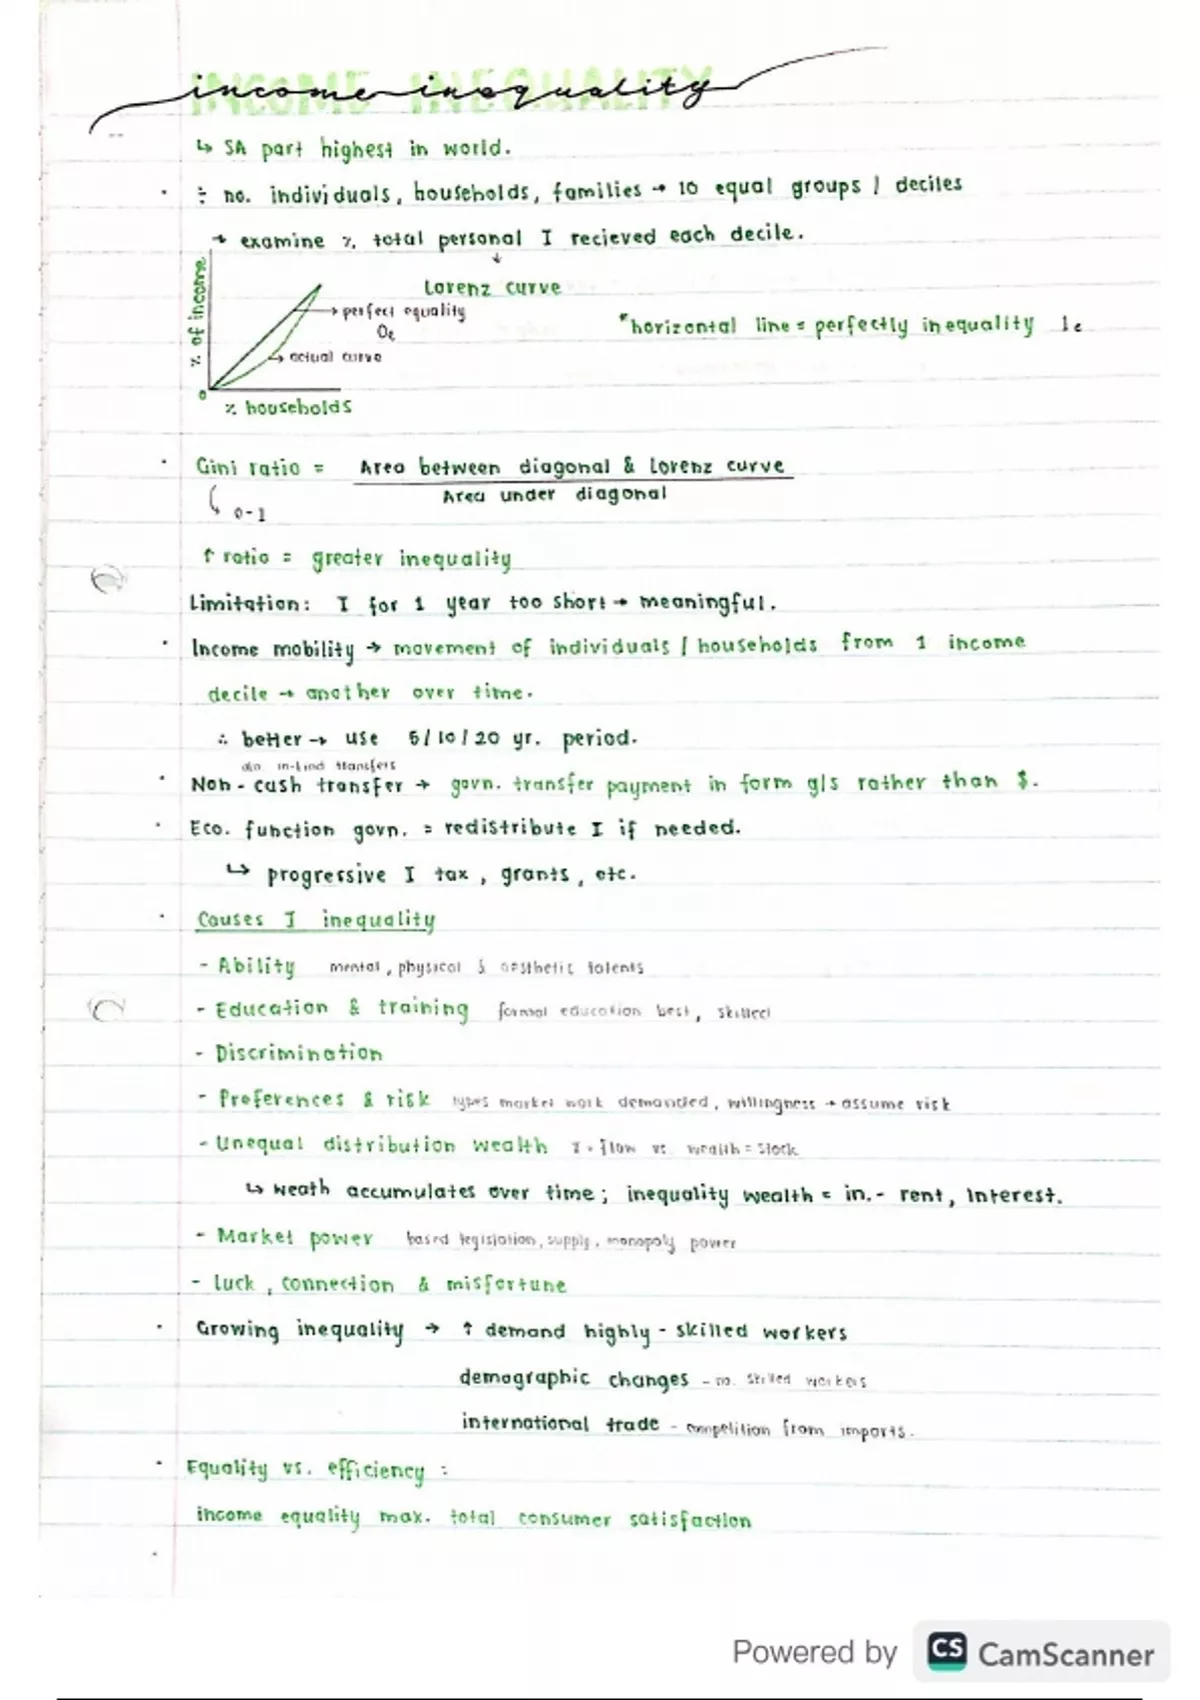 INCOME INEQUALITY
income inequality
↳ SA part highest in world.
· ÷ no. individuals, households, families → 10 equal groups / deciles
→ examine % total personal I recieved each decile.
↓
Lorenz curve
% of income
→ perfect equality
*horizontal line = perfectly inequality
→ actual curve
0
% households
· Gini ratio = Area between diagonal & Lorenz curve
Area under diagonal
↳ 0-1
↑ ratio = greater inequality
Limitation: I for 1 year too short → meaningful.
· Income mobility → movement of individuals / households from 1 income
decile → another over time.
∴ better → use 5/10/20 yr. period.
in-kind transfers
· Non-cash transfer → govn. transfer payment in form g/s rather than $.
· Eco. function govn. = redistribute I if needed.
↳ progressive I tax, grants, etc.
· Causes I inequality
- Ability mental, physical & aesthetic talents
- Education & training formal education best, skilled
- Discrimination
- Preferences & risk types market work demanded, willingness → assume risk
- Unequal distribution wealth I = flow vs. wealth = stock
↳ weath accumulates over time; inequality wealth = in.- rent, interest.
- Market power based legislation, supply, monopoly power
- Luck, connection & misfortune
· Growing inequality → ↑ demand highly-skilled workers
demographic changes - no. skilled workers
international trade - competition from imports.
· Equality vs. efficiency :
income equality max. total consumer satisfaction
Powered by CS CamScanner